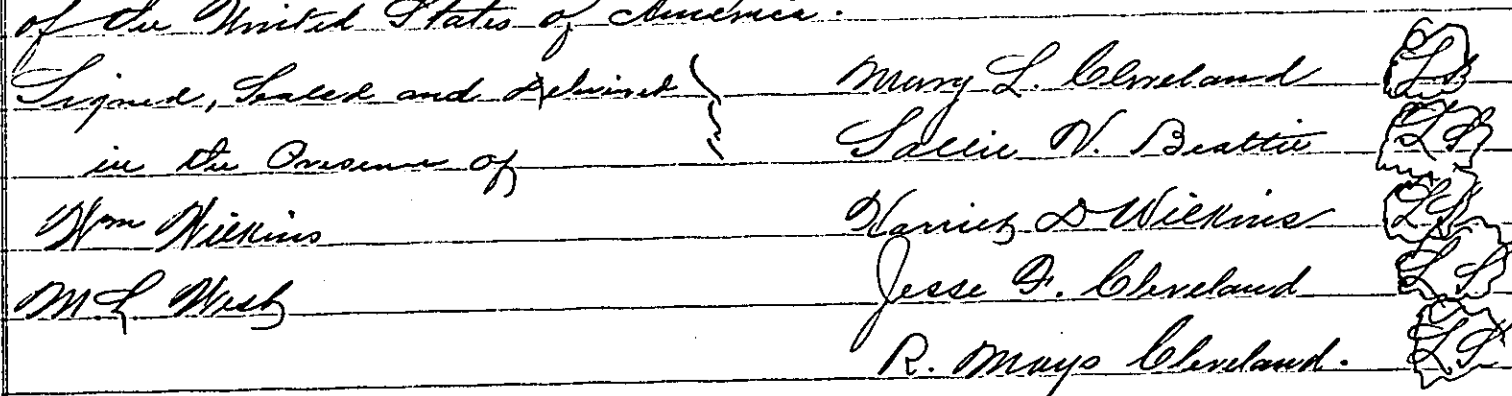 of the United States of America.
Signed, Sealed and Delivered } Mary L. Cleveland LS
in the Presence of Sallie V. Beattie LS
Wm Wilkins Harriet D Wilkins LS
M L West Jesse F. Cleveland LS
R. Mays Cleveland. LS